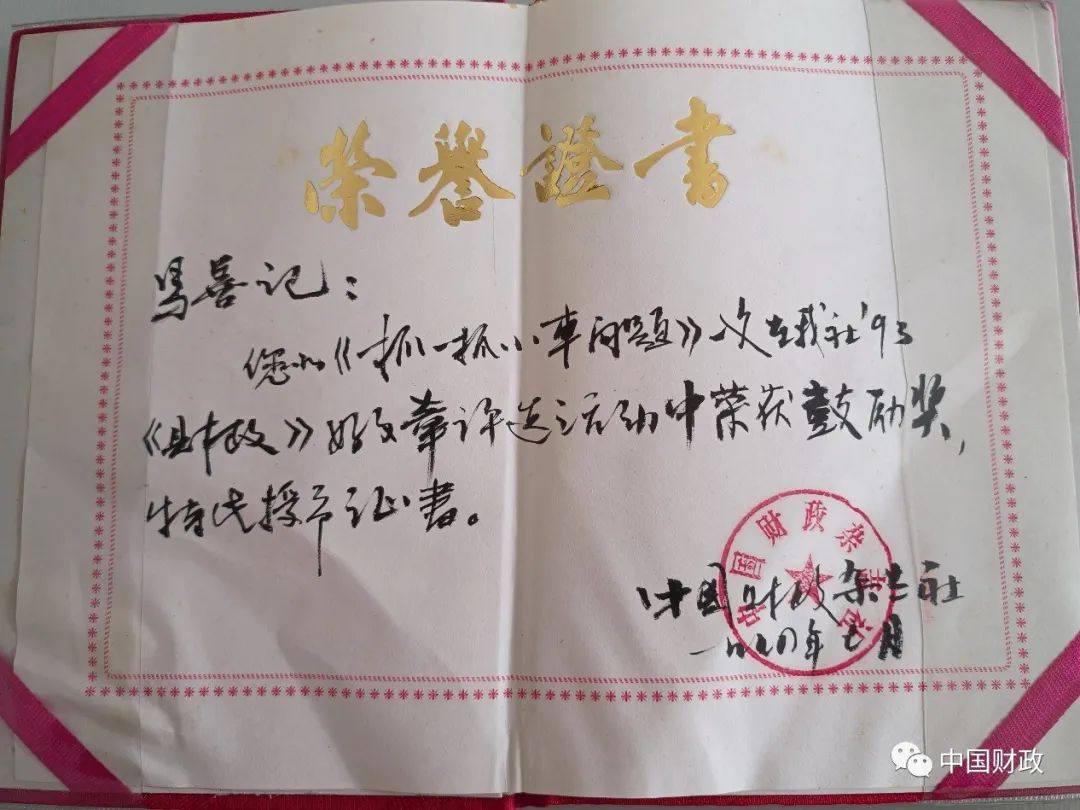 榮譽證書
马喜记：
您的《抓一抓小車问题》一文在我社'93
《财政》好文章评选活动中荣获鼓励奖，
特此授予证书。
中国财政杂志社
中国财政杂志社
一九九四年七月
中国财政